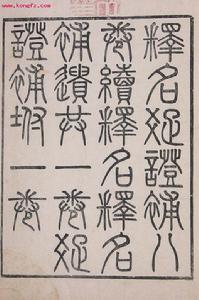 釋名疏證補八
卷續釋名釋名
補遺共一卷疏
證補坿一卷
w.kongfz.com